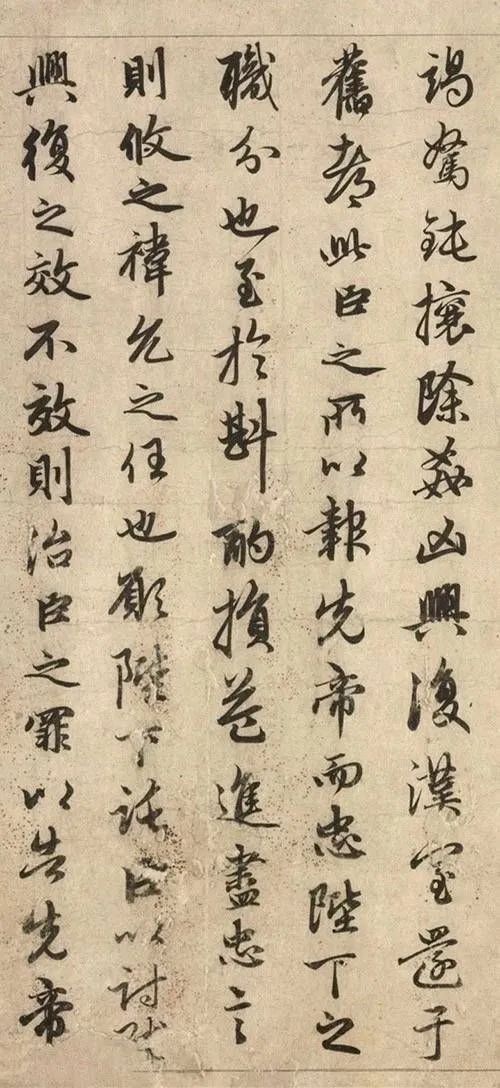 竭駑鈍攘除姦凶興復漢室還于
舊都此臣之所以報先帝而忠陛下之
職分也至於斟酌損益進盡忠言
則攸之禕允之任也願陛下託臣以討賊
興復之效不效則治臣之罪以告先帝